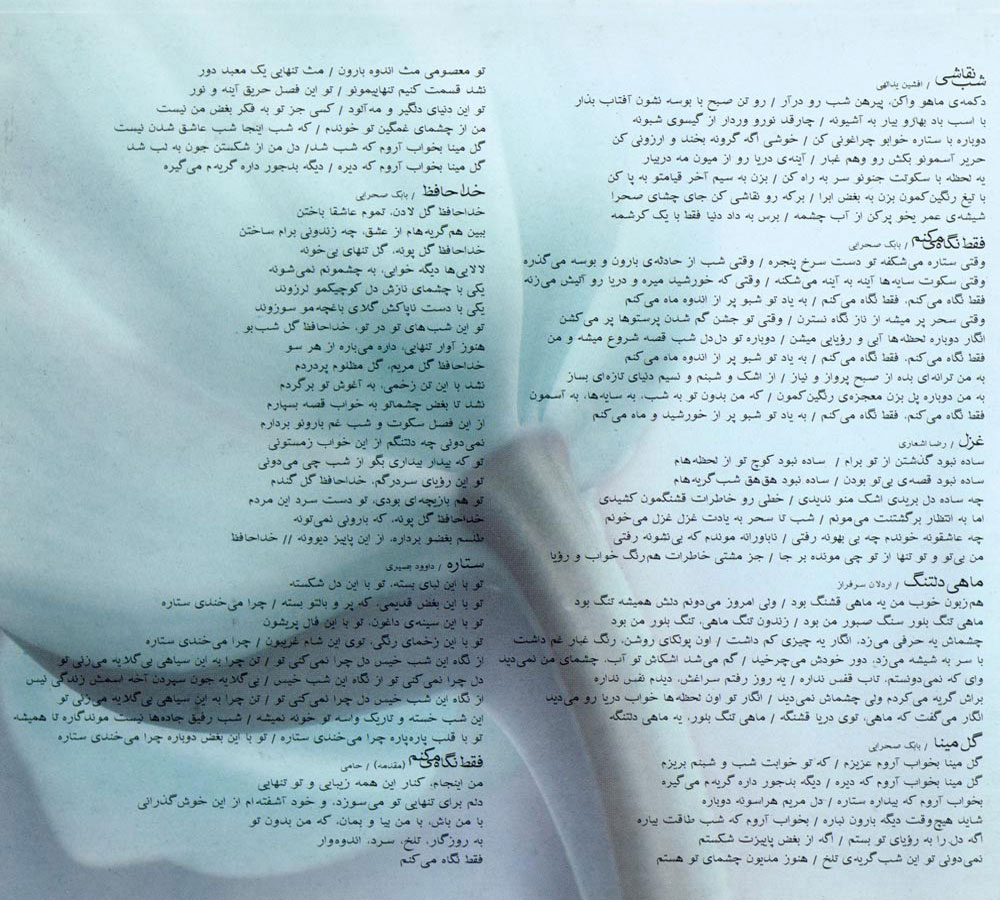 شب نقاشی / افشین یداللهی
دکمه‌ی ماهو واکن، پیرهن شب رو درآر / رو تن صبح با بوسه نشون آفتاب بذار
با اسب باد بهارو بیار به آشیونه / چارقد نورو وردار از گیسوی شبونه
دوباره با ستاره خوابو چراغونی کن / خوشی اگه گرونه بخند و ارزونی کن
حریر آسمونو بکش رو وهم غبار / آینه‌ی دریا رو از میون مه دربیار
یه لحظه با سکوتت جنونو سر به راه کن / بزن به سیم آخر قیامتو به پا کن
با تیغ رنگین‌کمون بزن به بغض ابرا / برکه رو نقاشی کن جای چشای صحرا
شیشه‌ی عمر یخو پرکن از آب چشمه / برس به داد دنیا فقط با یک کرشمه
فقط نگاه می‌کنم / بابک صحرایی
وقتی ستاره می‌شکفه تو دست سرخ پنجره / وقتی شب از حادثه‌ی بارون و بوسه می‌گذره
وقتی سکوت سایه‌ها آینه به آینه می‌شکنه / وقتی که خورشید میره و دریا رو آتیش می‌زنه
فقط نگاه می‌کنم، فقط نگاه می‌کنم / به یاد تو شبو پر از اندوه ماه می‌کنم
وقتی سحر پر میشه از ناز نگاه نسترن / وقتی تو جشن گم شدن پرستوها پر می‌کشن
انگار دوباره لحظه‌ها آبی و رؤیایی میشن / دوباره تو دل‌دل شب قصه شروع میشه و من
فقط نگاه می‌کنم، فقط نگاه می‌کنم / به یاد تو شبو پر از اندوه ماه می‌کنم
به من ترانه‌ای بده از صبح پرواز و نیاز / از اشک و شبنم و نسیم دنیای تازه‌ای بساز
به من دوباره پل بزن معجزه‌ی رنگین‌کمون / که من بدون تو به شب، به سایه‌ها، به آسمون
فقط نگاه می‌کنم، فقط نگاه می‌کنم / به یاد تو شبو پر از خورشید و ماه می‌کنم
غزل / رضا اشعاری
ساده نبود گذشتن از تو برام / ساده نبود کوچ تو از لحظه‌هام
ساده نبود قصه‌ی بی‌تو بودن / ساده نبود هق‌هق شب گریه‌هام
چه ساده دل بریدی اشک منو ندیدی / خطی رو خاطرات قشنگمون کشیدی
اما به انتظار برگشتنت می‌مونم / شب تا سحر به یادت غزل غزل می‌خونم
چه عاشقونه خوندم چه بی بهونه رفتی / ناباورانه موندم که بی‌نشونه رفتی
من بی‌تو و تو تنها از تو چی مونده بر جا / جز مشتی خاطرات هم‌رنگ خواب و رؤیا
ماهی دلتنگ / اردلان سرفراز
هم‌زبون خوب من یه ماهی قشنگ بود / ولی امروز می‌دونم دلش همیشه تنگ بود
ماهی تنگ بلور سنگ صبور من بود / زندون تنگ ماهی، تنگ بلور من بود
چشماش به حرفی می‌زد، انگار یه چیزی کم داشت / اون پولکای روشن، رنگ غبار غم داشت
با سر به شیشه می‌زد، دور خودش می‌چرخید / گم می‌شد اشکاش تو آب، چشمای من نمی‌دید
وای که نمی‌دونستم، تاب قفس نداره / یه روز رفتم سراغش، دیدم نفس نداره
براش گریه می‌کردم ولی چشماش نمی‌دید / انگار تو اون لحظه‌ها خواب دریا رو می‌دید
انگار می‌گفت که ماهی، توی دریا قشنگه / ماهی تنگ بلور، یه ماهی دلتنگه
گل مینا / بابک صحرایی
گل مینا بخواب آروم عزیزم / که تو خوابت شب و شبنم بریزم
گل مینا بخواب آروم که دیره / دیگه بدجور داره گریه‌م می‌گیره
بخواب آروم که بیداره ستاره / دل مریم هراسونه دوباره
شاید هیچ‌وقت دیگه بارون نباره / بخواب آروم که شب طاقت بیاره
اگه دل.را به رؤیای تو بستم / اگه از بغض پاییزت شکستم
نمی‌دونی تو این شب گریه‌ی تلخ / هنوز مدیون چشمای تو هستم
تو معصومی مث اندوه بارون / مث تنهایی یک معبد دور
نشد قسمت کنیم تنهاییمونو / تو این فصل حریق آینه و نور
تو این دنیای دلگیر و مه‌آلود / کسی جز تو به فکر بغض من نیست
من از چشمای غمگین تو خوندم / که شب اینجا شب عاشق شدن نیست
گل مینا بخواب آروم که شب شد/ دل من از شکستن جون به لب شد
گل مینا بخواب آروم که دیره / دیگه بدجور داره گریه‌م می‌گیره
خداحافظ / بابک صحرایی
خداحافظ گل لادن، تموم عاشقا باختن
ببین هم‌گریه‌هام از عشق، چه زندونی برام ساختن
خداحافظ گل پونه، گل تنهای بی‌خونه
لالایی‌ها دیگه خوابی، به چشمونم نمی‌شونه
یکی با چشمای نازش دل کوچیکمو لرزوند
یکی با دست ناپاکش گلای باغچه‌مو سوزوند
تو این شب‌های تو در تو، خداحافظ گل شب‌بو
هنوز آوار تنهایی، داره می‌باره از هر سو
خداحافظ گل مریم، گل مظلوم پردردم
نشد با این تن زخمی، به آغوش تو برگردم
نشد تا بغض چشماتو به خواب قصه بسپارم
از این فصل سکوت و شب غم بارونو بردارم
نمی‌دونی چه دلتنگم از این خواب زمستونی
تو که بیدار بیداری بگو از شب چی می‌دونی
تو این رؤیای سردرگم، خداحافظ گل گندم
تو هم بازیچه‌ای بودی، تو دست سرد این مردم
خداحافظ گل پونه، که بارونی نمی‌تونه
طلسم بغضو برداره، از این پاییز دیوونه // خداحافظ
ستاره / داوود بصیری
تو با این لبای بسته، تو با این دل شکسته
تو با این بغض قدیمی، که پر و بالتو بسته / چرا می‌خندی ستاره
تو با این سینه‌ی داغون، تو با این فال پریشون
تو با این زخمای رنگی، توی این شام غریبون / چرا می‌خندی ستاره
از نگاه این شب خیس دل چرا نمی‌کنی تو / تن چرا به این سیاهی بی‌گلایه می‌زنی تو
دل چرا نمی‌کنی تو از نگاه این شب خیس / بی‌گلایه جون سپردن آخه اسمش زندگی نیس
از نگاه این شب خیس دل چرا نمی‌کنی تو / تن چرا به این سیاهی بی‌گلایه می‌زنی تو
این شب خسته و تاریک واسه تو خونه نمیشه / شب رفیق جاده‌ها نیست موندگاره تا همیشه
تو با قلب پاره‌پاره چرا می‌خندی ستاره / تو با این بغض دوباره چرا می‌خندی ستاره
فقط نگاه می‌کنم (مقدمه) / حامی
من اینجام، کنار این همه زیبایی و تو تنهایی
دلم برای تنهایی تو می‌سوزد، و خود آشفته‌ام از این خوش‌گذرانی
با من باش، با من بیا و بمان، که من بدون تو
به روزگار، تلخ، سرد، اندوه‌وار
فقط نگاه می‌کنم